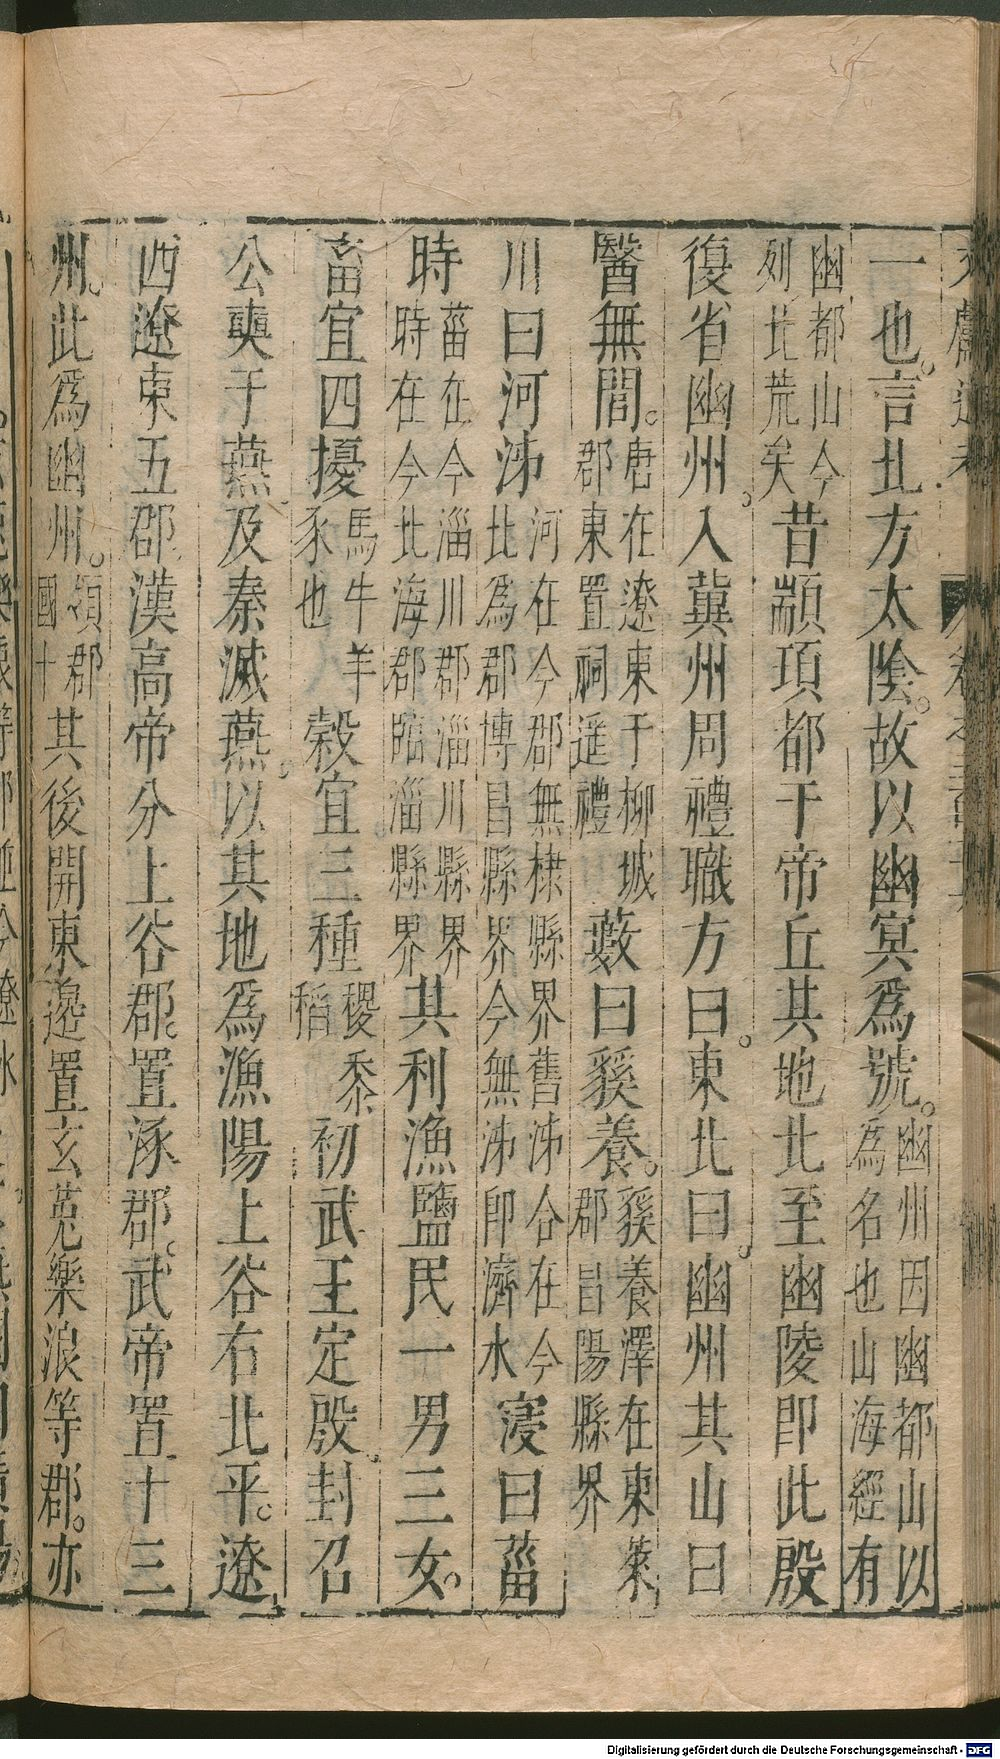 一也。言北方太陰。故以幽冥爲號。幽州因幽都山以為名也山海經有
幽都山今列北荒矣昔顓頊都于帝丘其地北至幽陵卽此殷
復省幽州。入冀州周禮職方曰。東北曰。幽州其山曰
醫無閭。唐在遼東于柳城郡東置祠遥禮藪曰貕養。貕養澤在東萊郡昌陽縣界
川曰河泲河在今郡無棣縣界舊泲合在今北爲郡博昌縣界今無泲卽濟水寖曰菑
時菑在今淄川郡淄川縣界時在今北海郡臨淄縣界其利漁鹽民一男三女。
畜宜四擾馬牛羊豕也穀宜三種稷黍稻初武王定殷。封召
公奭于燕。及秦滅燕。以其地爲漁陽上谷右北平。遼
西遼東五郡。漢高帝分上谷郡。置涿郡。武帝置十三
州。此爲幽州。領郡國十其後開東邊置玄菟樂浪等郡。亦
Digitalisierung gefördert durch die Deutsche Forschungsgemeinschaft - DFG